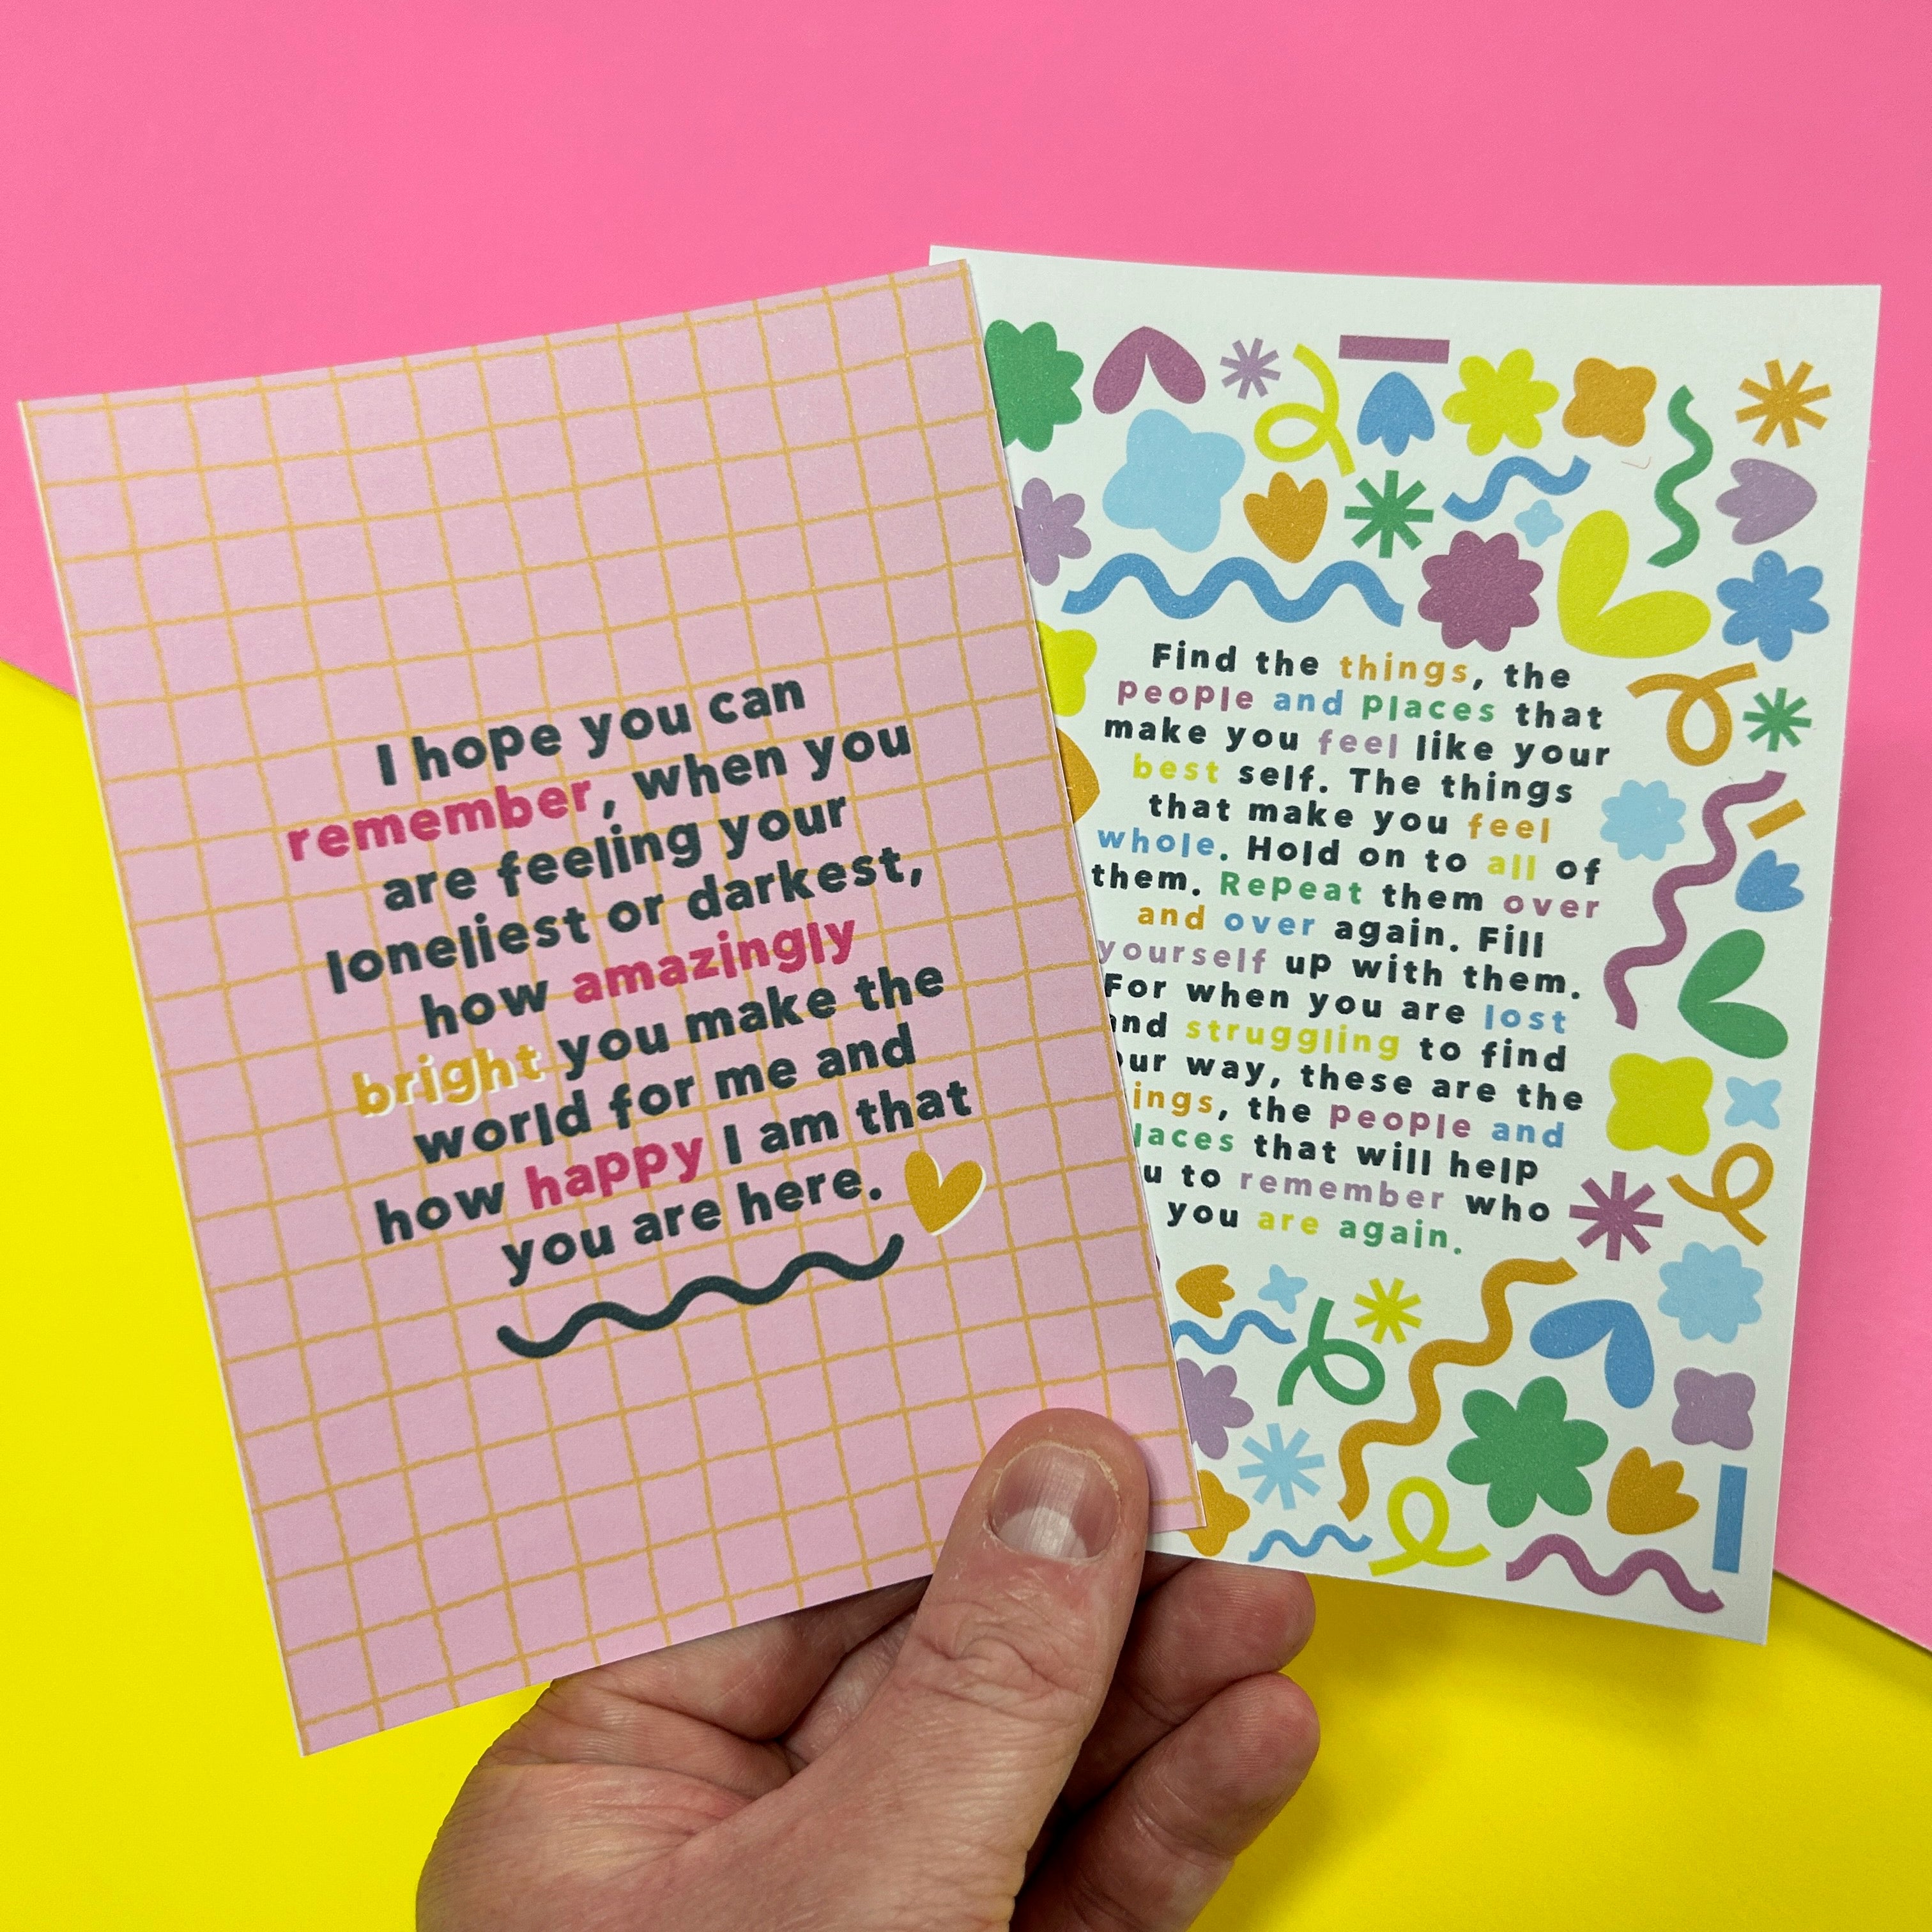 I hope you can
remember, when you
are feeling your
loneliest or darkest,
how amazingly
bright you make the
world for me and
how happy I am that
you are here.
Find the things, the
people and places that
make you feel like your
best self. The things
that make you feel
whole. Hold on to all of
them. Repeat them over
and over again. Fill
yourself up with them.
For when you are lost
and struggling to find
way, these are the
the people and
that will help
to remember who
you are again.